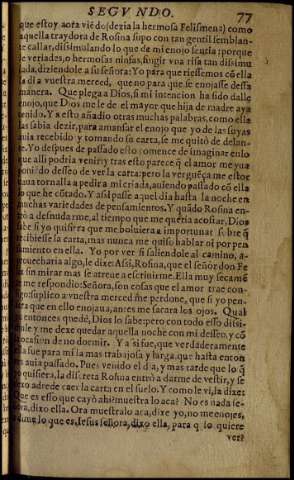 SEGVNDO. 77
que estoy aora viẽdo (dezia la hermosa Felismena) como
aquella traydora de Rosina supo con tan gentil semblan-
te callar, dissimulando lo que de mi enojo sentia: porque
le veriades, o hermosas ninfas, fingir vna risa tan dissimu
lada, diziendole a su señora: Yo para que riessemos cõ ella
la di a vuestra merced, que no para que se enojasse dessa
manera. Que plega a Dios, si mi intencion ha sido dalle
enojo, que Dios me le de el mayor que hija de madre aya
tenido. Y a esto añadio otras muchas palabras, como ella
las sabia dezir, para amansar el enojo que yo de las suyas
auia recebido y tomando su carta, se me quitò de delan-
te. Yo despues de passado esto comence de imaginar en lo
que alli podria venir y tras esto parece q̃ el amor me yua
poniẽdo desseo de ver la carta: pero la verguẽça me estor
uaua tornalla a pedir a mi criada, auiendo passado cõ ella
lo que he cõtado. Y assi passè aquel dia hasta la noche en
muchas variedades de pensamientos. Y quãdo Rosina en-
trò a desnudarme, al tiempo que me queria acostar, Dios
sabe si yo quisiera que me boluiera a importunar sobre q̃
recibiesse la carta, mas nunca me quiso hablar ni por pen
samiento en ella. Yo por ver si saliendole al camino, a-
prouecharia algo, le dixe: Assi, Rosina, que el señor don Fe
lix sin mirar mas se atreue a escriuirme. Ella muy secamẽ
te me respondio: Señora, son cosas que el amor trae con-
sigo: suplico a vuestra merced me perdone, que si yo pen-
sara que en ello enojaua, antes me sacara los ojos. Qual
yo entonces quedè, Dios lo sabe: pero con todo esso dissi-
mulè y me dexe quedar aquella noche con mi desseo, y cõ
la ocasion de no dormir. Y assi fue, que verdaderamente
ella fue para mi la mas trabajosa y larga, que hasta enton
ces auia passado. Pues venido el dia, y mas tarde que lo q̃
yo quisiera, la discreta Rosina entrò a darme de vestir, y se
dexò adrede caer la carta en el suelo. Y como le vi, la dixe:
Que es esso que cayò ahi? muestra lo aca? No es nada se-
ñora, dixo ella. Ora muestralo aca, dixe yo, no me enojes,
o dime lo que es, Iesus señora, dixo ella, para q̃ lo quiere
ver?